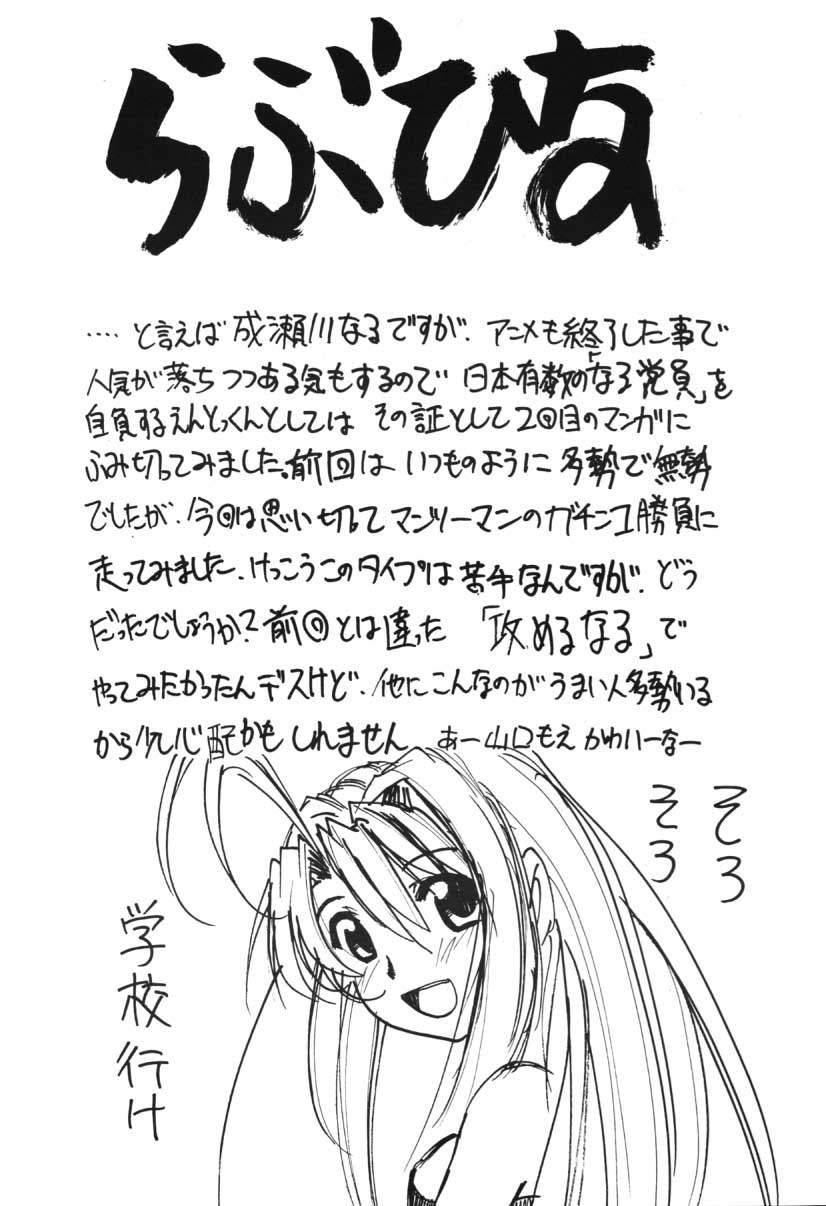 らぶひな
‥‥と言えば 成瀬川なるですが、アニメも終了した事で
人気が落ちつつある気もするので 日本有数の「なる党員」を
自負するえんとっくんとしては その証として2回目のマンガに
ふみ切ってみました。前回は いつものように 多勢で無勢
でしたが、今回は思い切って マンツーマンのガチンコ勝負に
走ってみました。けっこうこのタイプは 苦手なんですが、どう
だったでしょうか？前回とは違った 「攻めるなる」で
やってみたかったんデスけど、他にこんなのがうまい人多勢いる
から少し心配かもしれません あー山口もえ かわいーなー
そろ
そろ
学校行け